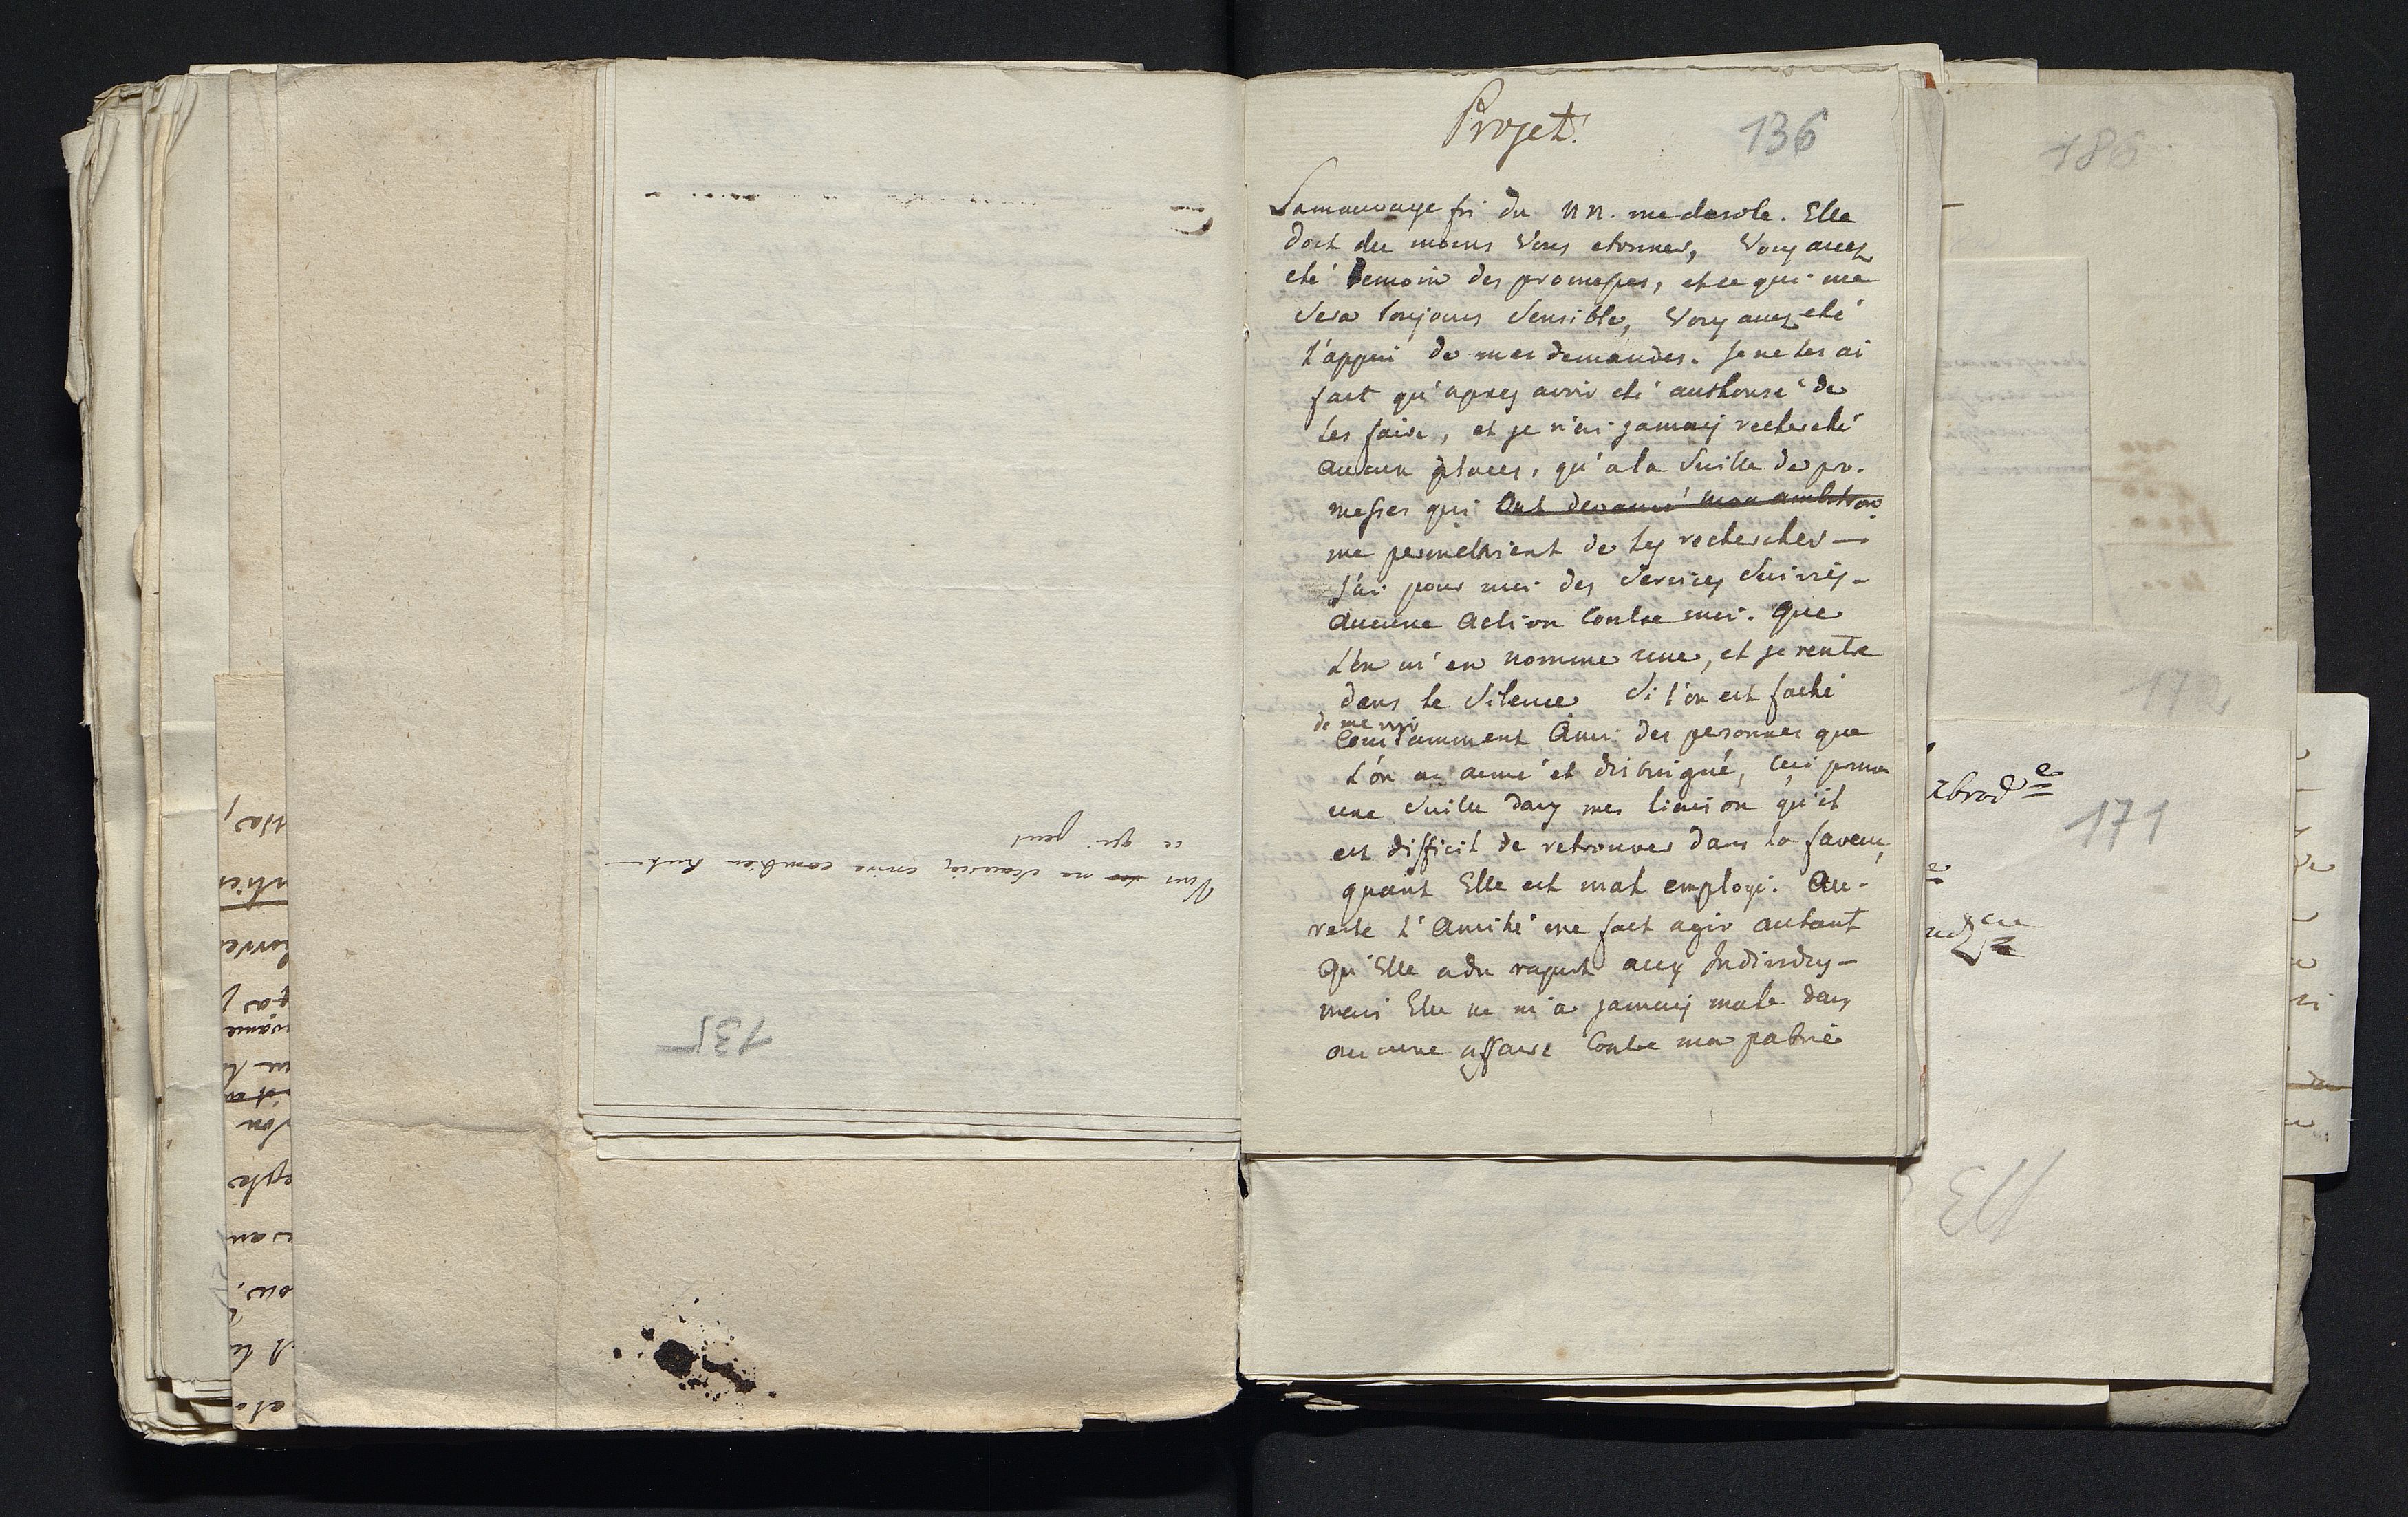 Projet.
136
La mauvaye foi du NN. me desole. Elle
doit du moins Vous etonner, Vous avez
eté temoin des promesses, et ce qui me
sera toujours sensible, Vous avez eté
l'appui de mes demandes. Je ne les ai
fait qu'apres avoir eté authorisé de
les faire, et je n'ai jamais recherché
aucun places, qu'a la suitte de pro-
messes qui ont devancé mon ambition
me permettoient de les rechercher —
J'ai pour moi des services suivis -
Aucune Action Contre moi. Que
l'on m'en nomme une, et je rentre
dans le Silence. Si l'on est faché
de me voir
Constamment Ami des personnes que
l'on a aimé et distingué, Ceci prouve
une suitte dans mes liaison qu'il
est difficil de retrouver dans la faveur,
quant Elle est mal employé. Au-
reste l'Amitié me fait agir autant
qu'Elle a du raport aux Individus -
mais Elle ne m'a jamais melé dans
aucune affaire Contre ma patrie
Vous ne sauriez croire combien
ce qui peut
135
186
172
171
173